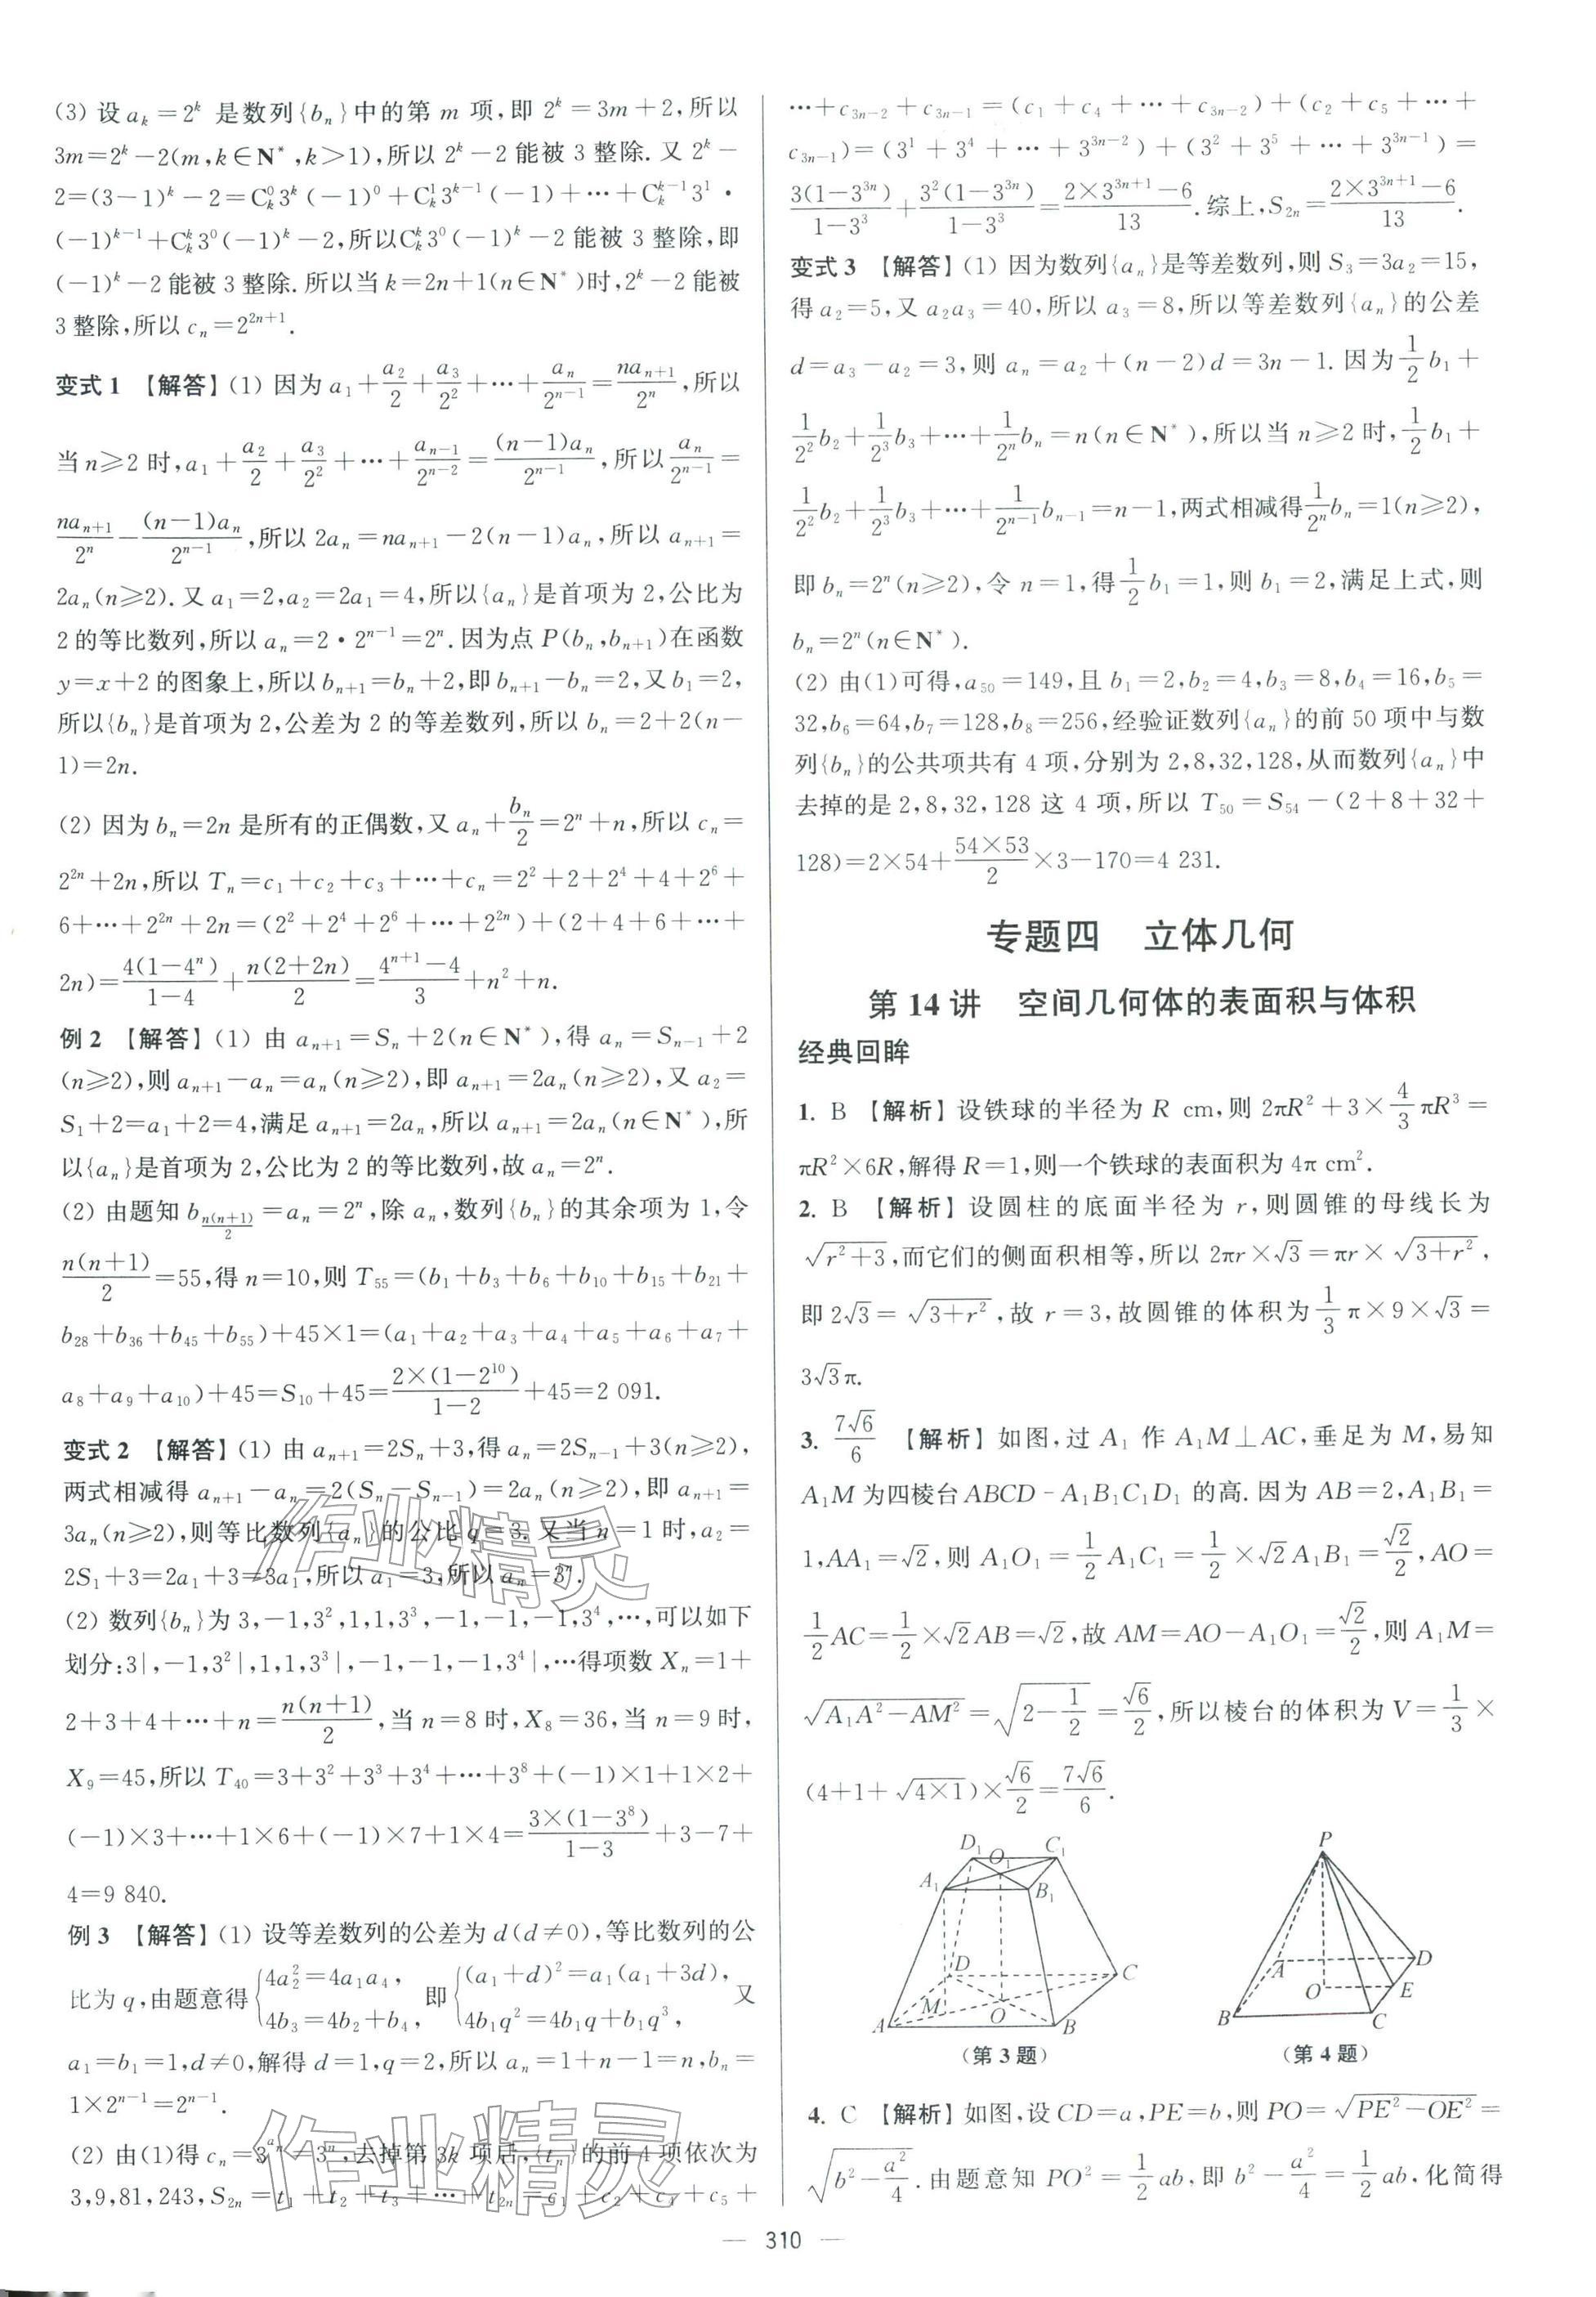 (3) 设 aₖ=2ᵏ 是数列{bₙ}中的第 m 项,即 2ᵏ=3m+2,所以
3m=2ᵏ-2(m,k∈N*,k>1),所以 2ᵏ-2 能被 3 整除. 又 2ᵏ-
2=(3-1)ᵏ-2=C_k^0 3^k(-1)^0+C_k^1 3^{k-1}(-1)+…+C_k^{k-1}3^1·
(-1)^{k-1}+C_k^k 3^0(-1)^k-2,所以C_k^k 3^0(-1)^k-2 能被 3 整除,即
(-1)^k-2 能被 3 整除. 所以当 k=2n+1(n∈N*)时,2^k-2 能被
3 整除,所以 c_n=2^{2n+1}.
变式 1 【解答】(1) 因为 a_1+\frac{a_2}{2}+\frac{a_3}{2^2}+…+\frac{a_n}{2^{n-1}}=\frac{na_{n+1}}{2^n},所以
当 n≥2 时,a_1+\frac{a_2}{2}+\frac{a_3}{2^2}+…+\frac{a_{n-1}}{2^{n-2}}=\frac{(n-1)a_n}{2^{n-1}},所以\frac{a_n}{2^{n-1}}=
\frac{na_{n+1}}{2^n}-\frac{(n-1)a_n}{2^{n-1}},所以 2a_n=na_{n+1}-2(n-1)a_n,所以 a_{n+1}=
2a_n(n≥2). 又 a_1=2,a_2=2a_1=4,所以{a_n}是首项为 2,公比为
2 的等比数列,所以 a_n=2·2^{n-1}=2^n. 因为点 P(b_n,b_{n+1})在函数
y=x+2 的图象上,所以 b_{n+1}=b_n+2,即 b_{n+1}-b_n=2,又 b_1=2,
所以{b_n}是首项为 2,公差为 2 的等差数列,所以 b_n=2+2(n-
1)=2n.
(2) 因为 b_n=2n 是所有的正偶数,又 a_n+\frac{b_n}{2}=2^n+n,所以 c_n=
2^{2n}+2n,所以 T_n=c_1+c_2+c_3+…+c_n=2^2+2+2^4+4+2^6+
6+…+2^{2n}+2n=(2^2+2^4+2^6+…+2^{2n})+(2+4+6+…+
2n)=\frac{4(1-4^n)}{1-4}+\frac{n(2+2n)}{2}=\frac{4^{n+1}-4}{3}+n^2+n.
例 2 【解答】(1) 由 a_{n+1}=S_n+2(n∈N*),得 a_n=S_{n-1}+2
(n≥2),则 a_{n+1}-a_n=a_n(n≥2),即 a_{n+1}=2a_n(n≥2),又 a_2=
S_1+2=a_1+2=4,满足 a_{n+1}=2a_n,所以 a_{n+1}=2a_n(n∈N*),所
以{a_n}是首项为 2,公比为 2 的等比数列,故 a_n=2^n.
(2) 由题知 b_{\frac{n(n+1)}{2}}=a_n=2^n,除 a_n,数列{b_n}的其余项为 1,令
\frac{n(n+1)}{2}=55,得 n=10,则 T_{55}=(b_1+b_3+b_6+b_{10}+b_{15}+b_{21}+
b_{28}+b_{36}+b_{45}+b_{55})+45×1=(a_1+a_2+a_3+a_4+a_5+a_6+a_7+
a_8+a_9+a_{10})+45=S_{10}+45=\frac{2×(1-2^{10})}{1-2}+45=2 091.
变式 2 【解答】(1) 由 a_{n+1}=2S_n+3,得 a_n=2S_{n-1}+3(n≥2),
两式相减得 a_{n+1}-a_n=2(S_n-S_{n-1})=2a_n(n≥2),即 a_{n+1}=
3a_n(n≥2),则等比数列{a_n}的公比 q=3. 又当 n=1 时,a_2=
2S_1+3=2a_1+3=3a_1,所以 a_1=3,所以 a_n=3^n.
(2) 数列{b_n}为 3,-1,3^2,1,1,3^3,-1,-1,-1,3^4,…,可以如下
划分:3|,-1,3^2|,1,1,3^3|,-1,-1,-1,3^4|,…得项数 X_n=1+
2+3+4+…+n=\frac{n(n+1)}{2},当 n=8 时,X_8=36,当 n=9 时,
X_9=45,所以 T_{40}=3+3^2+3^3+3^4+…+3^8+(-1)×1+1×2+
(-1)×3+…+1×6+(-1)×7+1×4=\frac{3×(1-3^8)}{1-3}+3-7+
4=9 840.
例 3 【解答】(1) 设等差数列的公差为 d(d≠0),等比数列的公
比为 q,由题意得{4a_2^2=4a_1a_4, 4b_3=4b_2+b_4, 即{(a_1+d)^2=a_1(a_1+3d), 4b_1q^2=4b_1q+b_1q^3, 又
a_1=b_1=1,d≠0,解得 d=1,q=2,所以 a_n=1+n-1=n,b_n=
1×2^{n-1}=2^{n-1}.
(2) 由(1)得 c_n=3^{a_n}=3^n,去掉第 3k 项后,{t_n}的前 4 项依次为
3,9,81,243,S_{2n}=t_1+t_2+t_3+…+t_{2n}=c_1+c_2+c_4+c_5+
…+c_{3n-2}+c_{3n-1}=(c_1+c_4+…+c_{3n-2})+(c_2+c_5+…+
c_{3n-1})=(3^1+3^4+…+3^{3n-2})+(3^2+3^5+…+3^{3n-1})=
\frac{3(1-3^{3n})}{1-3^3}+\frac{3^2(1-3^{3n})}{1-3^3}=\frac{2×3^{3n+1}-6}{13}. 综上,S_{2n}=\frac{2×3^{3n+1}-6}{13}.
变式 3 【解答】(1) 因为数列{a_n}是等差数列,则 S_3=3a_2=15,
得 a_2=5,又 a_2a_3=40,所以 a_3=8,所以等差数列{a_n}的公差
d=a_3-a_2=3,则 a_n=a_2+(n-2)d=3n-1. 因为\frac{1}{2}b_1+
\frac{1}{2^2}b_2+\frac{1}{2^3}b_3+…+\frac{1}{2^n}b_n=n(n∈N*),所以当 n≥2 时,\frac{1}{2}b_1+
\frac{1}{2^2}b_2+\frac{1}{2^3}b_3+…+\frac{1}{2^{n-1}}b_{n-1}=n-1,两式相减得\frac{1}{2^n}b_n=1(n≥2),
即 b_n=2^n(n≥2),令 n=1,得\frac{1}{2}b_1=1,则 b_1=2,满足上式,则
b_n=2^n(n∈N*).
(2) 由(1)可得,a_{50}=149,且 b_1=2,b_2=4,b_3=8,b_4=16,b_5=
32,b_6=64,b_7=128,b_8=256,经验证数列{a_n}的前 50 项中与数
列{b_n}的公共项共有 4 项,分别为 2,8,32,128,从而数列{a_n}中
去掉的是 2,8,32,128 这 4 项,所以 T_{50}=S_{54}-(2+8+32+
128)=2×54+\frac{54×53}{2}×3-170=4 231.
专题四 立体几何
第 14 讲 空间几何体的表面积与体积
经典回眸
1. B 【解析】设铁球的半径为 R cm,则 2πR^2+3×\frac{4}{3}πR^3=
πR^2×6R,解得 R=1,则一个铁球的表面积为 4π cm^2.
2. B 【解析】设圆柱的底面半径为 r,则圆锥的母线长为
\sqrt{r^2+3},而它们的侧面积相等,所以 2πr×√3=πr×\sqrt{3+r^2},
即 2√3=\sqrt{3+r^2},故 r=3,故圆锥的体积为\frac{1}{3}π×9×√3=
3√3π.
3. \frac{7√6}{6} 【解析】如图,过 A_1 作 A_1M⊥AC,垂足为 M,易知
A_1M 为四棱台 ABCD-A_1B_1C_1D_1 的高. 因为 AB=2,A_1B_1=
1,AA_1=√2,则 A_1O_1=\frac{1}{2}A_1C_1=\frac{1}{2}×√2A_1B_1=\frac{√2}{2},AO=
\frac{1}{2}AC=\frac{1}{2}×√2AB=√2,故 AM=AO-A_1O_1=\frac{√2}{2},则 A_1M=
\sqrt{A_1A^2-AM^2}=\sqrt{2-\frac{1}{2}}=\frac{√6}{2},所以棱台的体积为 V=\frac{1}{3}×
(4+1+\sqrt{4×1})×\frac{√6}{2}=\frac{7√6}{6}.
D_1 O_1 C_1
A_1 B_1
D C
M O
A B
(第 3 题)
P
A D
O E
B C
(第 4 题)
4. C 【解析】如图,设 CD=a,PE=b,则 PO=\sqrt{PE^2-OE^2}=
\sqrt{b^2-\frac{a^2}{4}}. 由题意知 PO^2=\frac{1}{2}ab,即 b^2-\frac{a^2}{4}=\frac{1}{2}ab,化简得
— 310 —
作业精灵
作业精灵